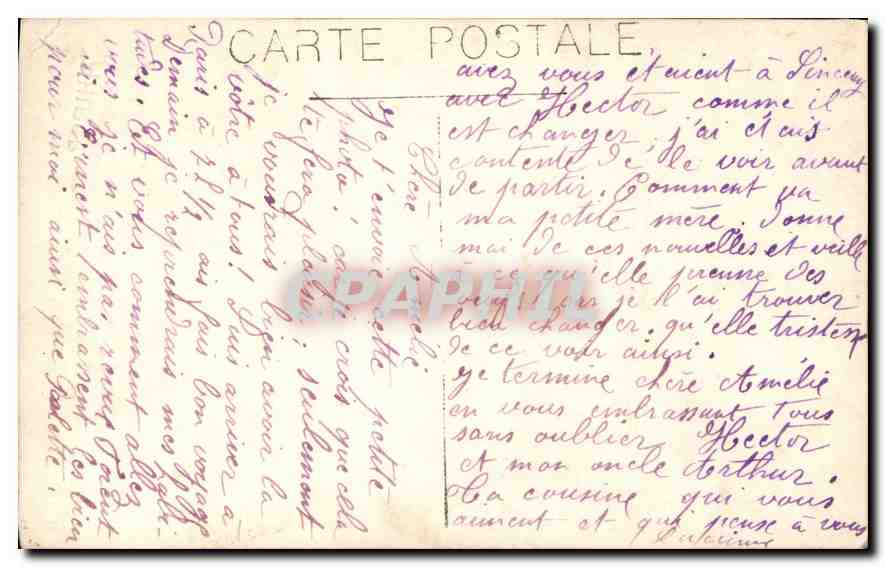 CARTE POSTALE
Chère Amélie
Je t'envoie cette petite
photo! car je crois que cela
te fera plaisir; seulement
je voudrais bien avoir la
vôtre à tous! Suis arriver à
Paris à 7h½ ais fais bon voyage
Demain je reprendrais mes
tudes. Et vous comment allez
vous je n'ais pas
embrassent les bien
pour moi ainsi que
avez vous étaient à Sinceny
avec Hector comme il
est changer, j'ai étais
contente de le voir avant
de partir. Comment va
ma petite mère. Donne
moi de ces nouvelles et veille
à ce qu'elle prenne des
je l'ai trouver
bien changer. qu'elle tristesse
de ce voir ainsi.
Je termine chère Amélie
en vous embrassant tous
sans oublier Hector
et mon oncle Arthur.
Ta cousine qui vous
aiment et qui pense à vous
CPAPHIL